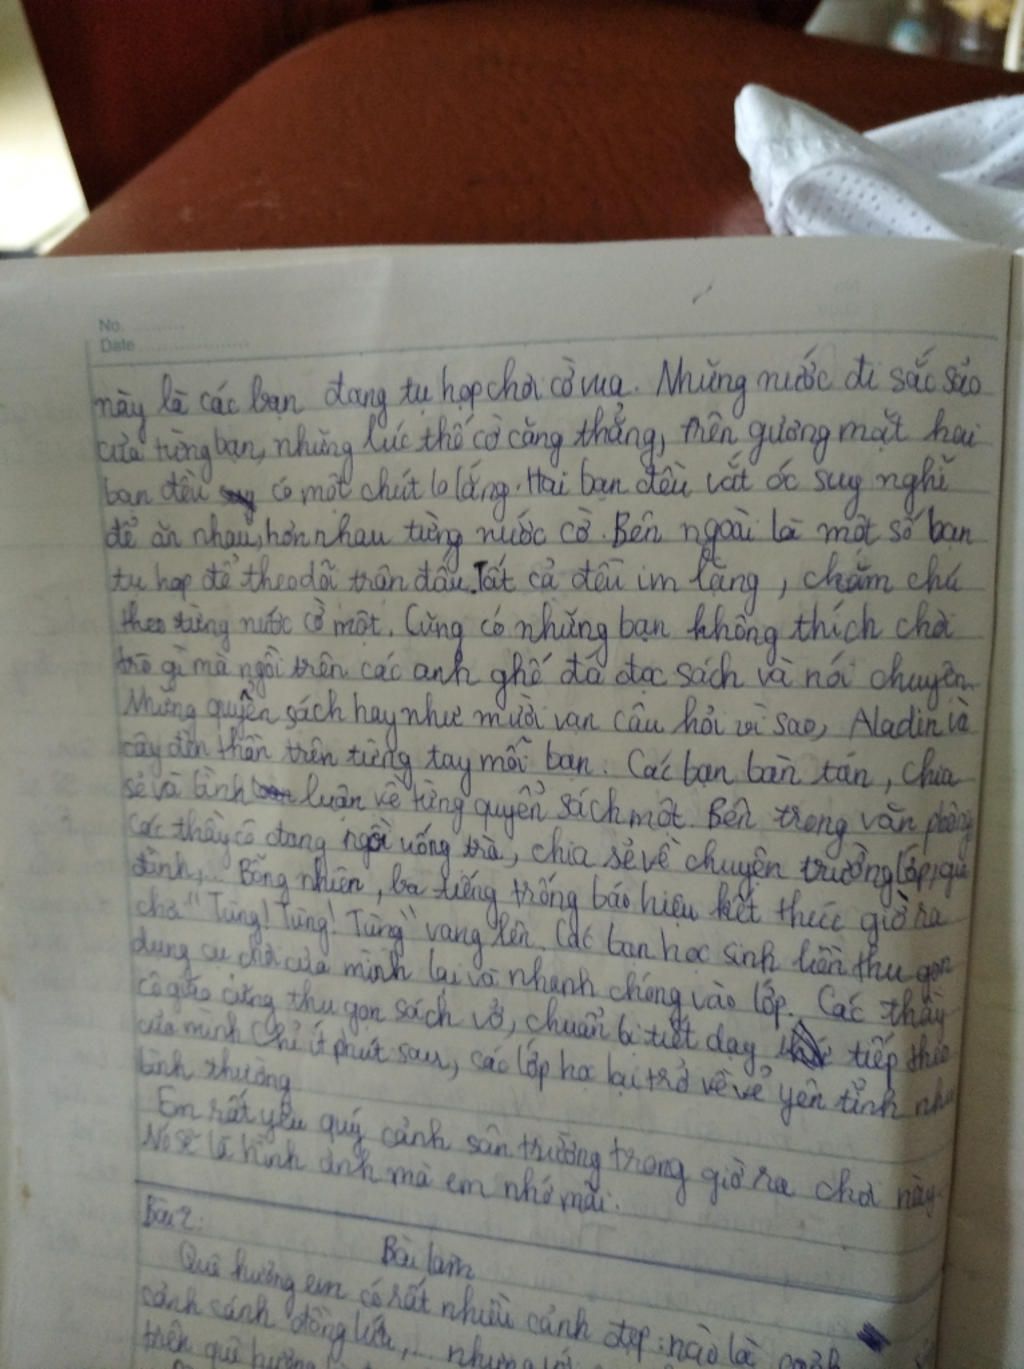 No.
Date
này là các bạn đang tụ họp chơi cờ vua. Những nước đi sắc sảo
của từng bạn, những lúc thế cờ căng thẳng, trên gương mặt hai
bạn đều có một chút lo lắng. Hai bạn đều vắt óc suy nghĩ
để ăn nhau, hơn nhau từng nước cờ. Bên ngoài là một số bạn
tụ họp để theo dõi trận đấu. Tất cả đều im lặng, chăm chú
theo từng nước cờ một. Cũng có những bạn không thích chơi
trò gì mà ngồi trên các anh ghế đá đọc sách và nói chuyện.
Những quyển sách hay như mười vạn câu hỏi vì sao, Aladin và
cây đèn thần trên từng tay mỗi bạn. Các bạn bàn tán, chia
sẻ và bình luận về từng quyển sách một. Bên trong văn phòng
các thầy cô đang ngồi uống trà, chia sẻ về chuyện trường lớp, gia
đình,... Bỗng nhiên, ba tiếng trống báo hiệu kết thúc giờ ra
chơi "Tùng! Tùng! Tùng" vang lên. Các bạn học sinh liền thu gọn
dụng cụ chơi của mình lại và nhanh chóng vào lớp. Các thầy
cô giáo cũng thu gọn sách vở, chuẩn bị tiết dạy tiếp theo
của mình Chỉ ít phút sau, các lớp học lại trở về vẻ yên tĩnh như
bình thường
Em rất yêu quý cảnh sân trường trong giờ ra chơi này.
Nó sẽ là hình ảnh mà em nhớ mãi.
Bài 2:
Bài làm
Quê hương em có rất nhiều cảnh đẹp: nào là
cảnh cánh đồng lúa,... nhưng
trên quê hương